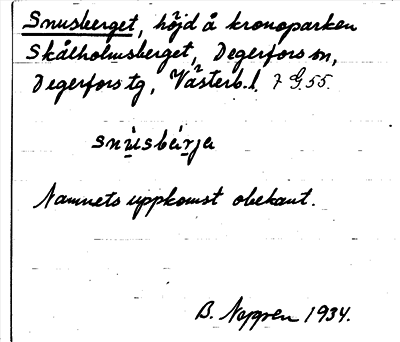 Snusberget, höjd å kronoparken
Skålholmsberget, Degerfors sn,
Degerfors tg, Västerb. l. 7 G. 55.
snu̠sbärja
Namnets uppkomst obekant.
B. 1934.